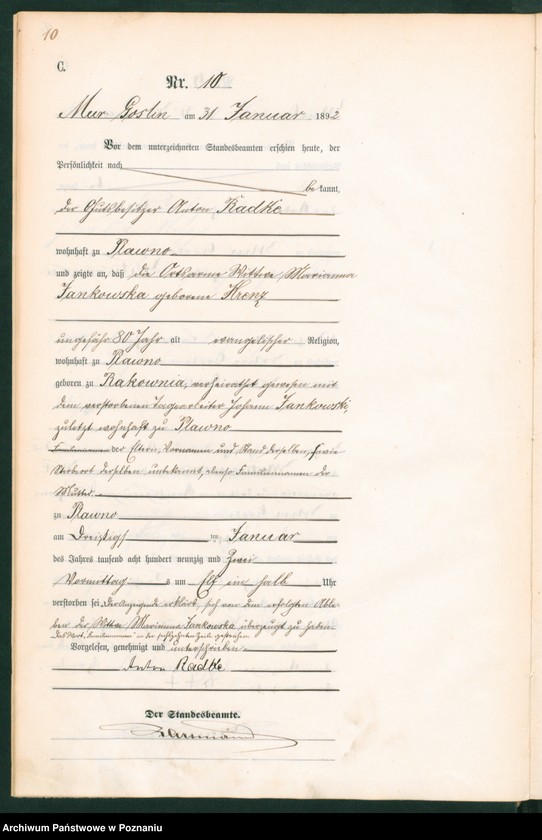 10
C.
Nr. 10
Mur. Goslin am 31 Januar 1892
Vor dem unterzeichneten Standesbeamten erschien heute, der
Persönlichkeit nach
bekannt,
der Gutsbesitzer Anton Radke
wohnhaft zu Plawno
und zeigte an, daß die Ortsarme Wittwe, Marianna
Jankowska geborene Krenz
ungefähr 80 Jahr alt evangelischer Religion,
wohnhaft zu Plawno
geboren zu Rakownia, verheirathet gewesen mit
dem verstorbenen Tagearbeiter Johann Jankowski,
zuletzt wohnhaft zu Plawno
der Eltern, Vornamen und Stand derselben, sowie
Sterbeort derselben unbekannt, ebenso Familiennamen der
Mutter
zu Plawno
am Dreißigst im Januar
des Jahres tausend acht hundert neunzig und Zwei
Vormittags um Elf ein halb Uhr
verstorben sei, Der Anzeigende erklärt, sich von dem erfolgten Able-
ben der Wittwe Marianna Jankowska überzeugt zu haben.
Das Wort Familiennamen in der Zeile gestrichen
Vorgelesen, genehmigt und unterschrieben
Anton Radke
Der Standesbeamte.
Archiwum Państwowe w Poznaniu